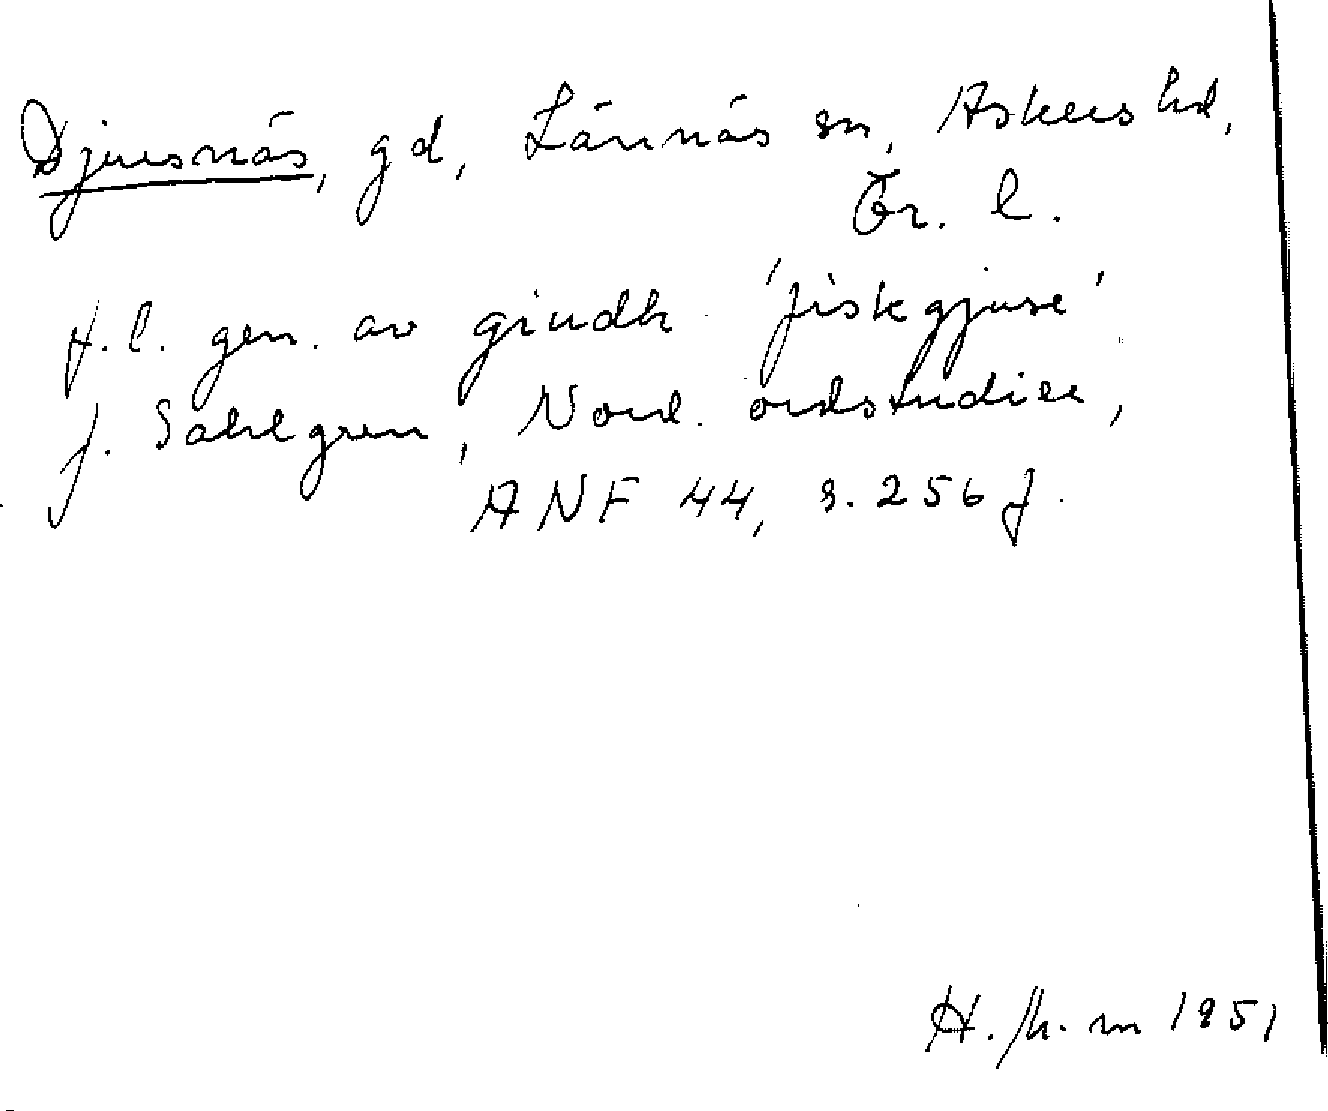 Djursnäs, gd, Lännäs sn, Askers hd,
Ör. l.
f.l. gen. av giudh 'fiskgjuse'
J. Sahlgren, Nord. ordstudier,
ANF 44, s. 256 f.
H. m 1951